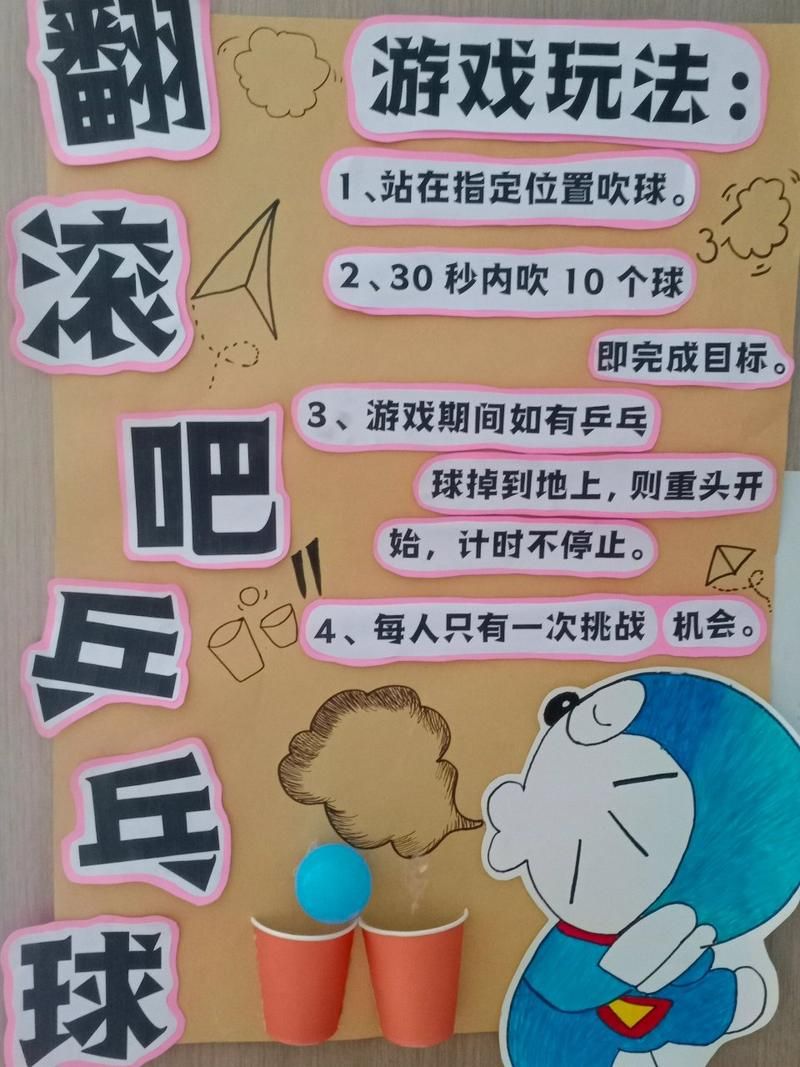 翻滚吧乒乓球
游戏玩法：
1、站在指定位置吹球。
2、30秒内吹10个球
即完成目标。
3、游戏期间如有乒乓
球掉到地上，则重头开
始，计时不停止。
4、每人只有一次挑战机会。